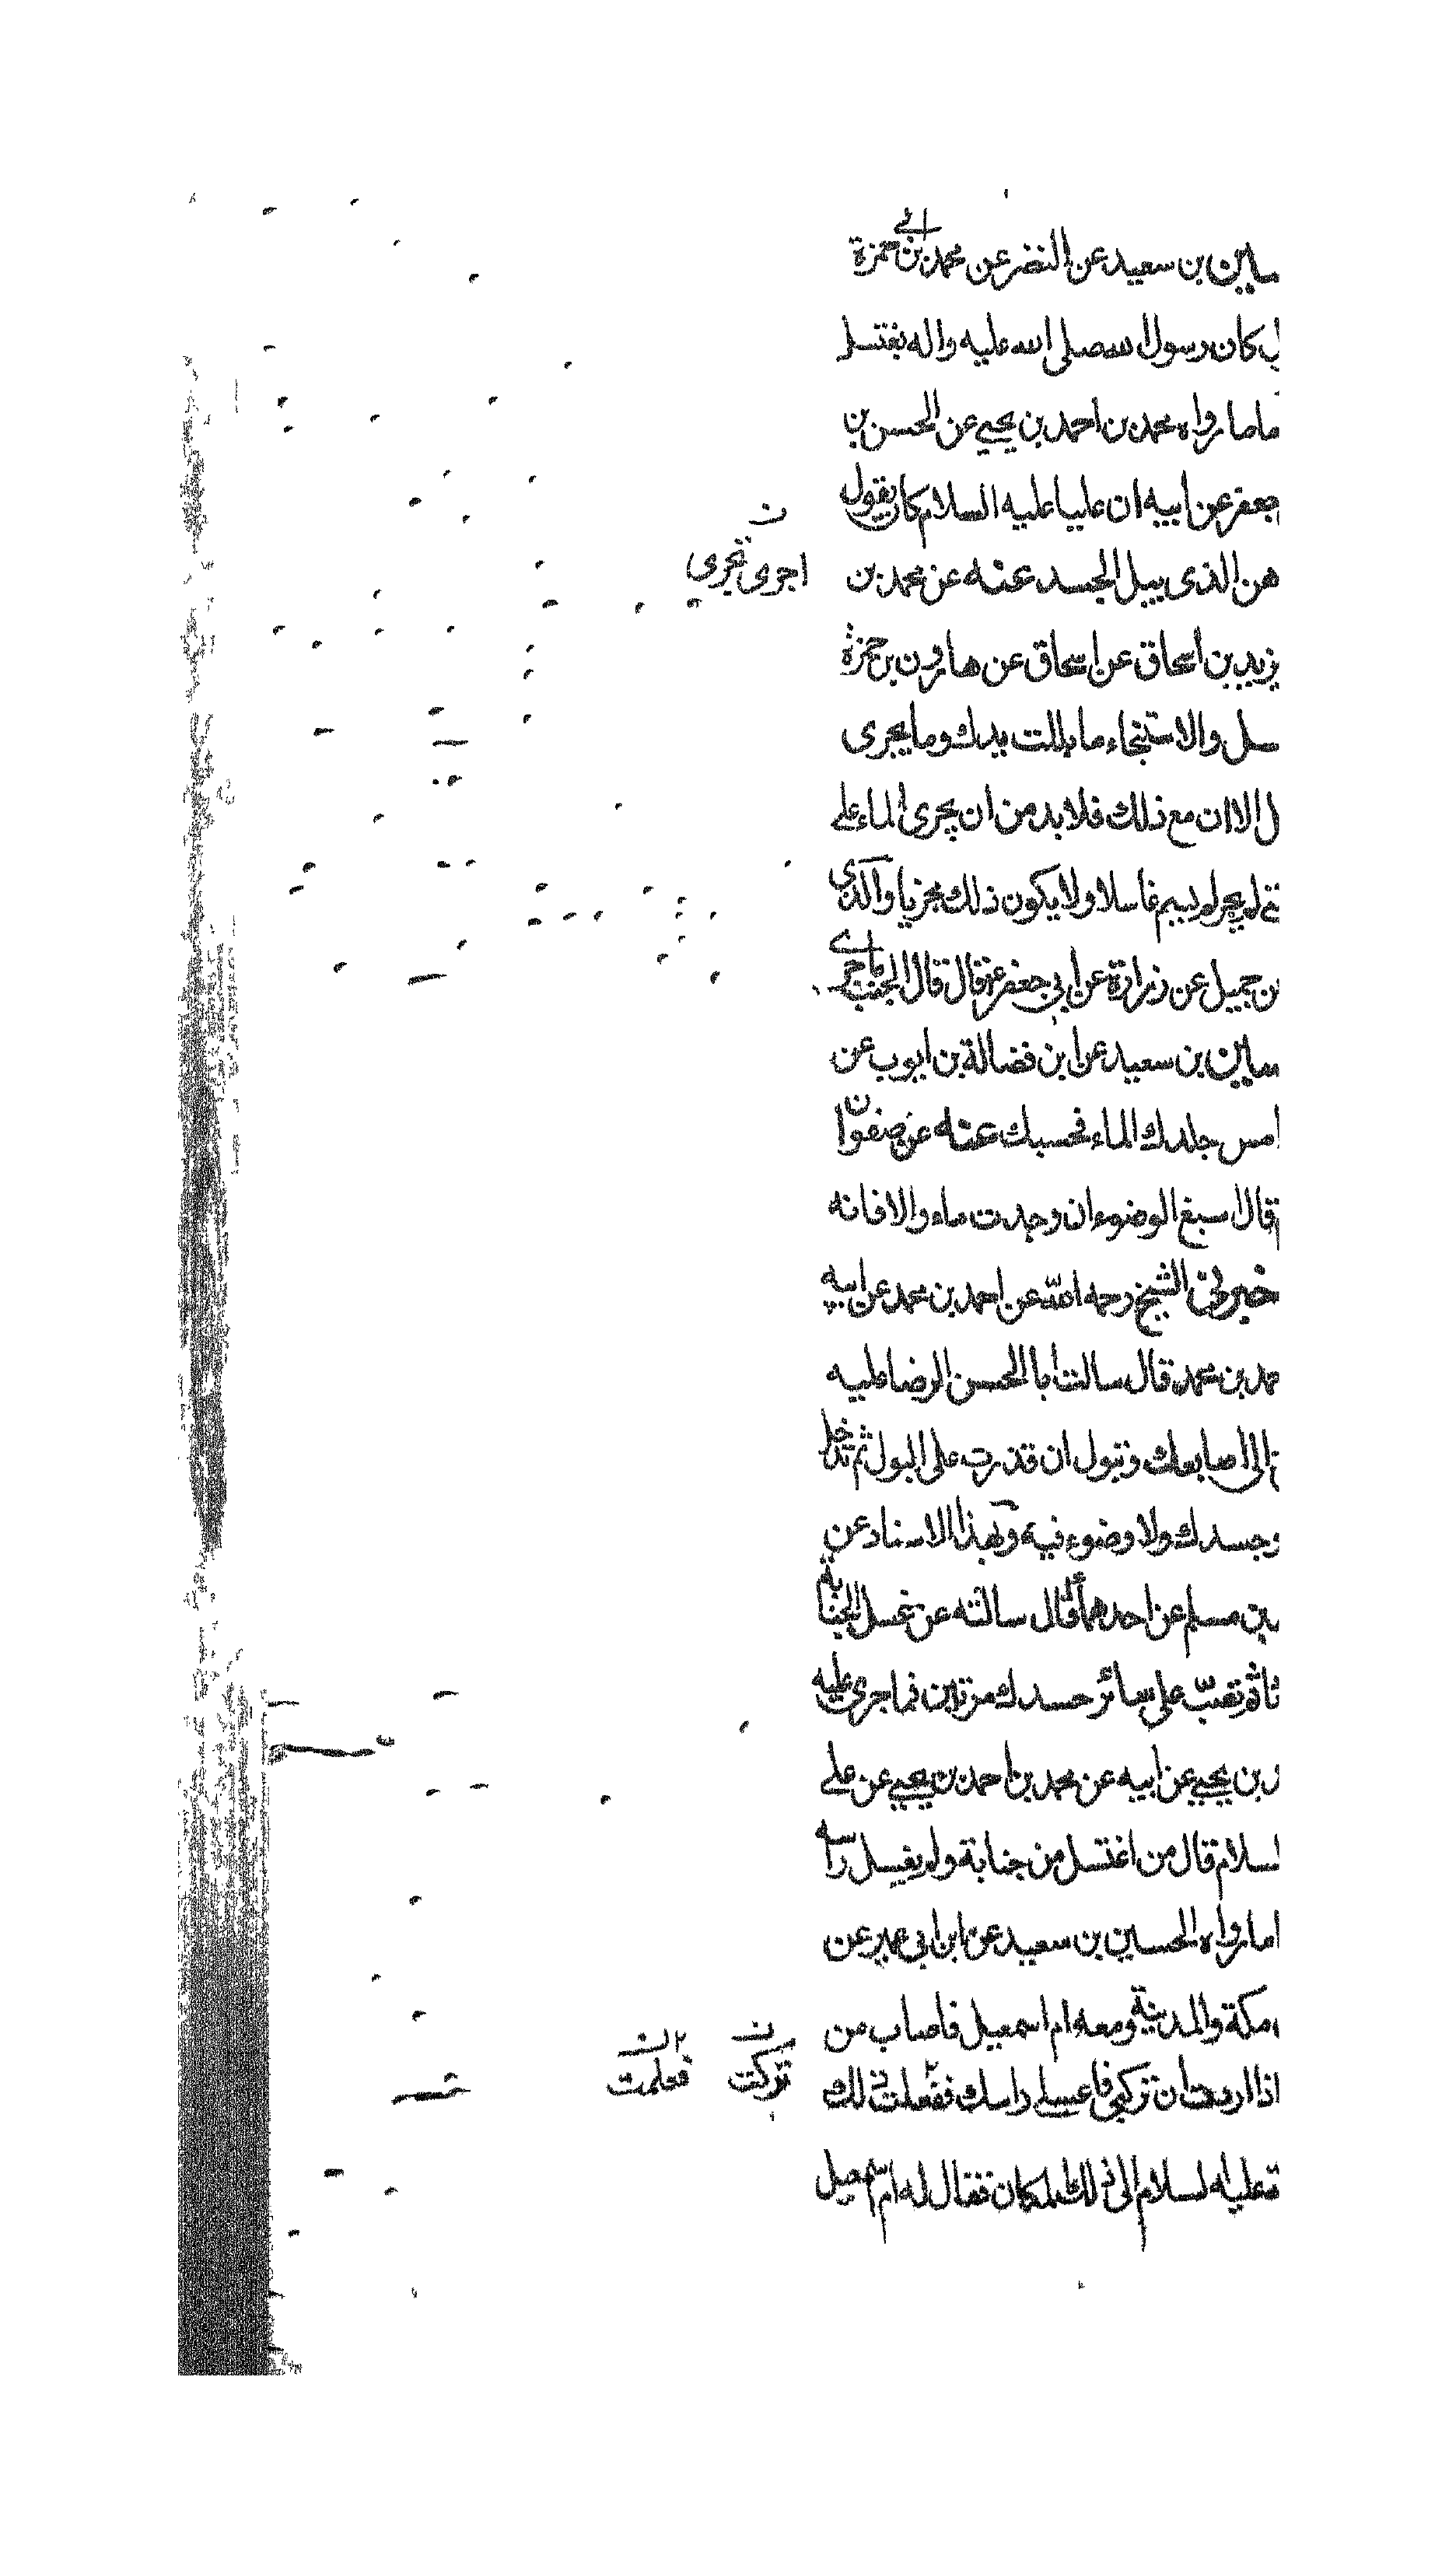 سين بن سعيد عن النضر عن محمد بن أبي حمزة
كان رسول الله صلى الله عليه واله يغتسل
ما رواه محمد بن احمد بن يحيى عن الحسن بن
جعفر عن ابيه ان عليا عليه السلام كان يقول
هن الذى يبل الجسد عنه عن محمد بن
ن
اجرى تجرى
يزيد بن اسحاق عن اسحاق عن هارون بن حمزة
سل والاستنجاء ما بللت يدك وما يجرى
الا ان مع ذلك فلا بد من ان يجرى الماء على
لم يجر لم يسم غاسلا ولا يكون ذلك مجزيا والذى
جميل عن زرارة عن ابى جعفر ع قال قال الجنب ما جرى
سين بن سعيد عن ابن فضالة بن ايوب عن
امس جلدك الماء فحسبك عنه عن صفوان
قال اسبغ الوضوء ان وجدت ماء والا فانه
خبرنى الشيخ رحمه الله عن احمد بن محمد عن ابيه
حمد بن محمد قال سالت ابا الحسن الرضا عليه
الى اصابعك وتبول ان قدرت على البول ثم تدخل
وجسدك ولا وضوء فيه وبهذا الاسناد عن
بن مسلم عن احدهما ع قال سالته عن غسل الجنابة
ثا ثم تصب على سائر جسدك مرتين فما جرى عليه
بن يحيى عن ابيه عن محمد بن احمد بن يحيى عن على
لسلام قال من اغتسل من جنابة ولم يغسل راسه
اما رواه الحسين بن سعيد عن ابن ابى عمير عن
مكة والمدينة ومعه ام اسمعيل فاصاب من
اذا اردت ان تركبى فاغسلى راسك ففعلت ذلك
ن
تركت
ن
فعلمت
عليه لسلام الى ذلك المكان فقال له ام اسمعيل